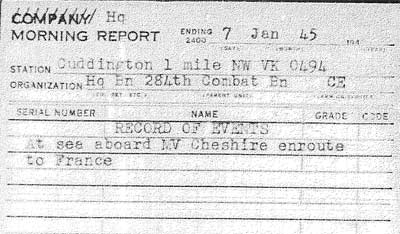 COMPANY Hq
MORNING REPORT ENDING 2400 7 Jan 45 194
(DAY) (MONTH)
STATION Cuddington 1 mile NW VK 0494
ORGANIZATION Hq Bn 284th Combat Bn CE
(PARENT UNIT)
SERIAL NUMBER NAME GRADE CODE
RECORD OF EVENTS
At sea aboard MV Cheshire enroute
to France